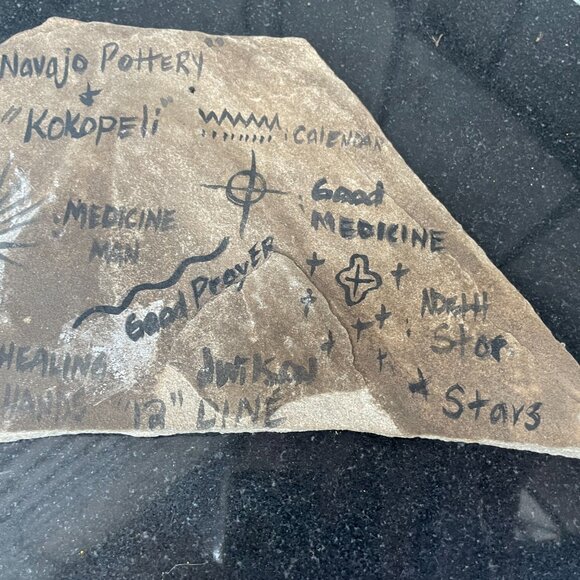 Navajo Pottery"
+
"Kokopeli"
: CALENDAR
: Good
MEDICINE
: MEDICINE
MAN
Good Prayer
NORTH
: Stop
HEALING
HANDS
JWilson
"12" DINÉ
Stars